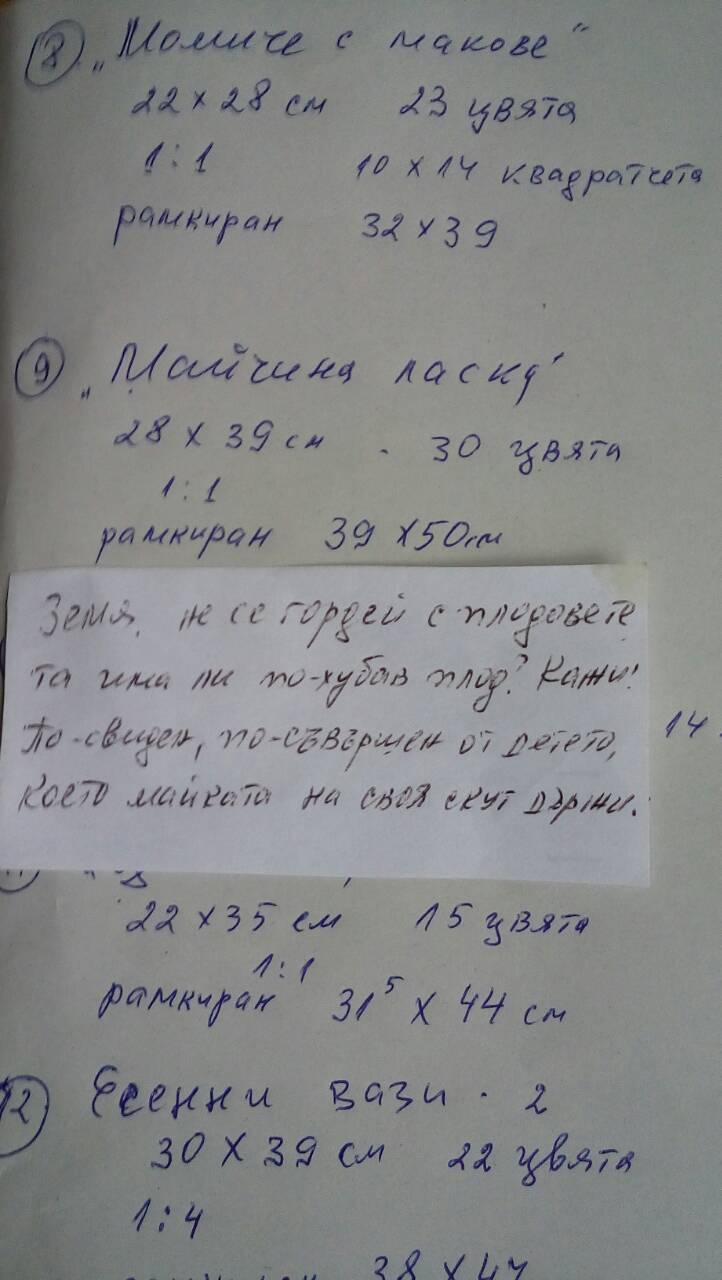 8 „Момиче с макове“
22 x 28 см 23 цвята
1:1 10 x 14 квадратчета
рамкиран 32 x 39
9 „Майчина ласка“
28 x 39 см . 30 цвята
1:1
рамкиран 39 x 50 см
Земя, не се гордей с плодовете
та има ли по-хубав плод? Кажи!
По-свиден, по-съвършен от детето,
14
което майката на своя скут държи.
22 x 35 см 15 цвята
1:1
рамкиран 31⁵ x 44 см
12 Есенни вази . 2
30 x 39 см 22 цвята
1:4
38 x 47